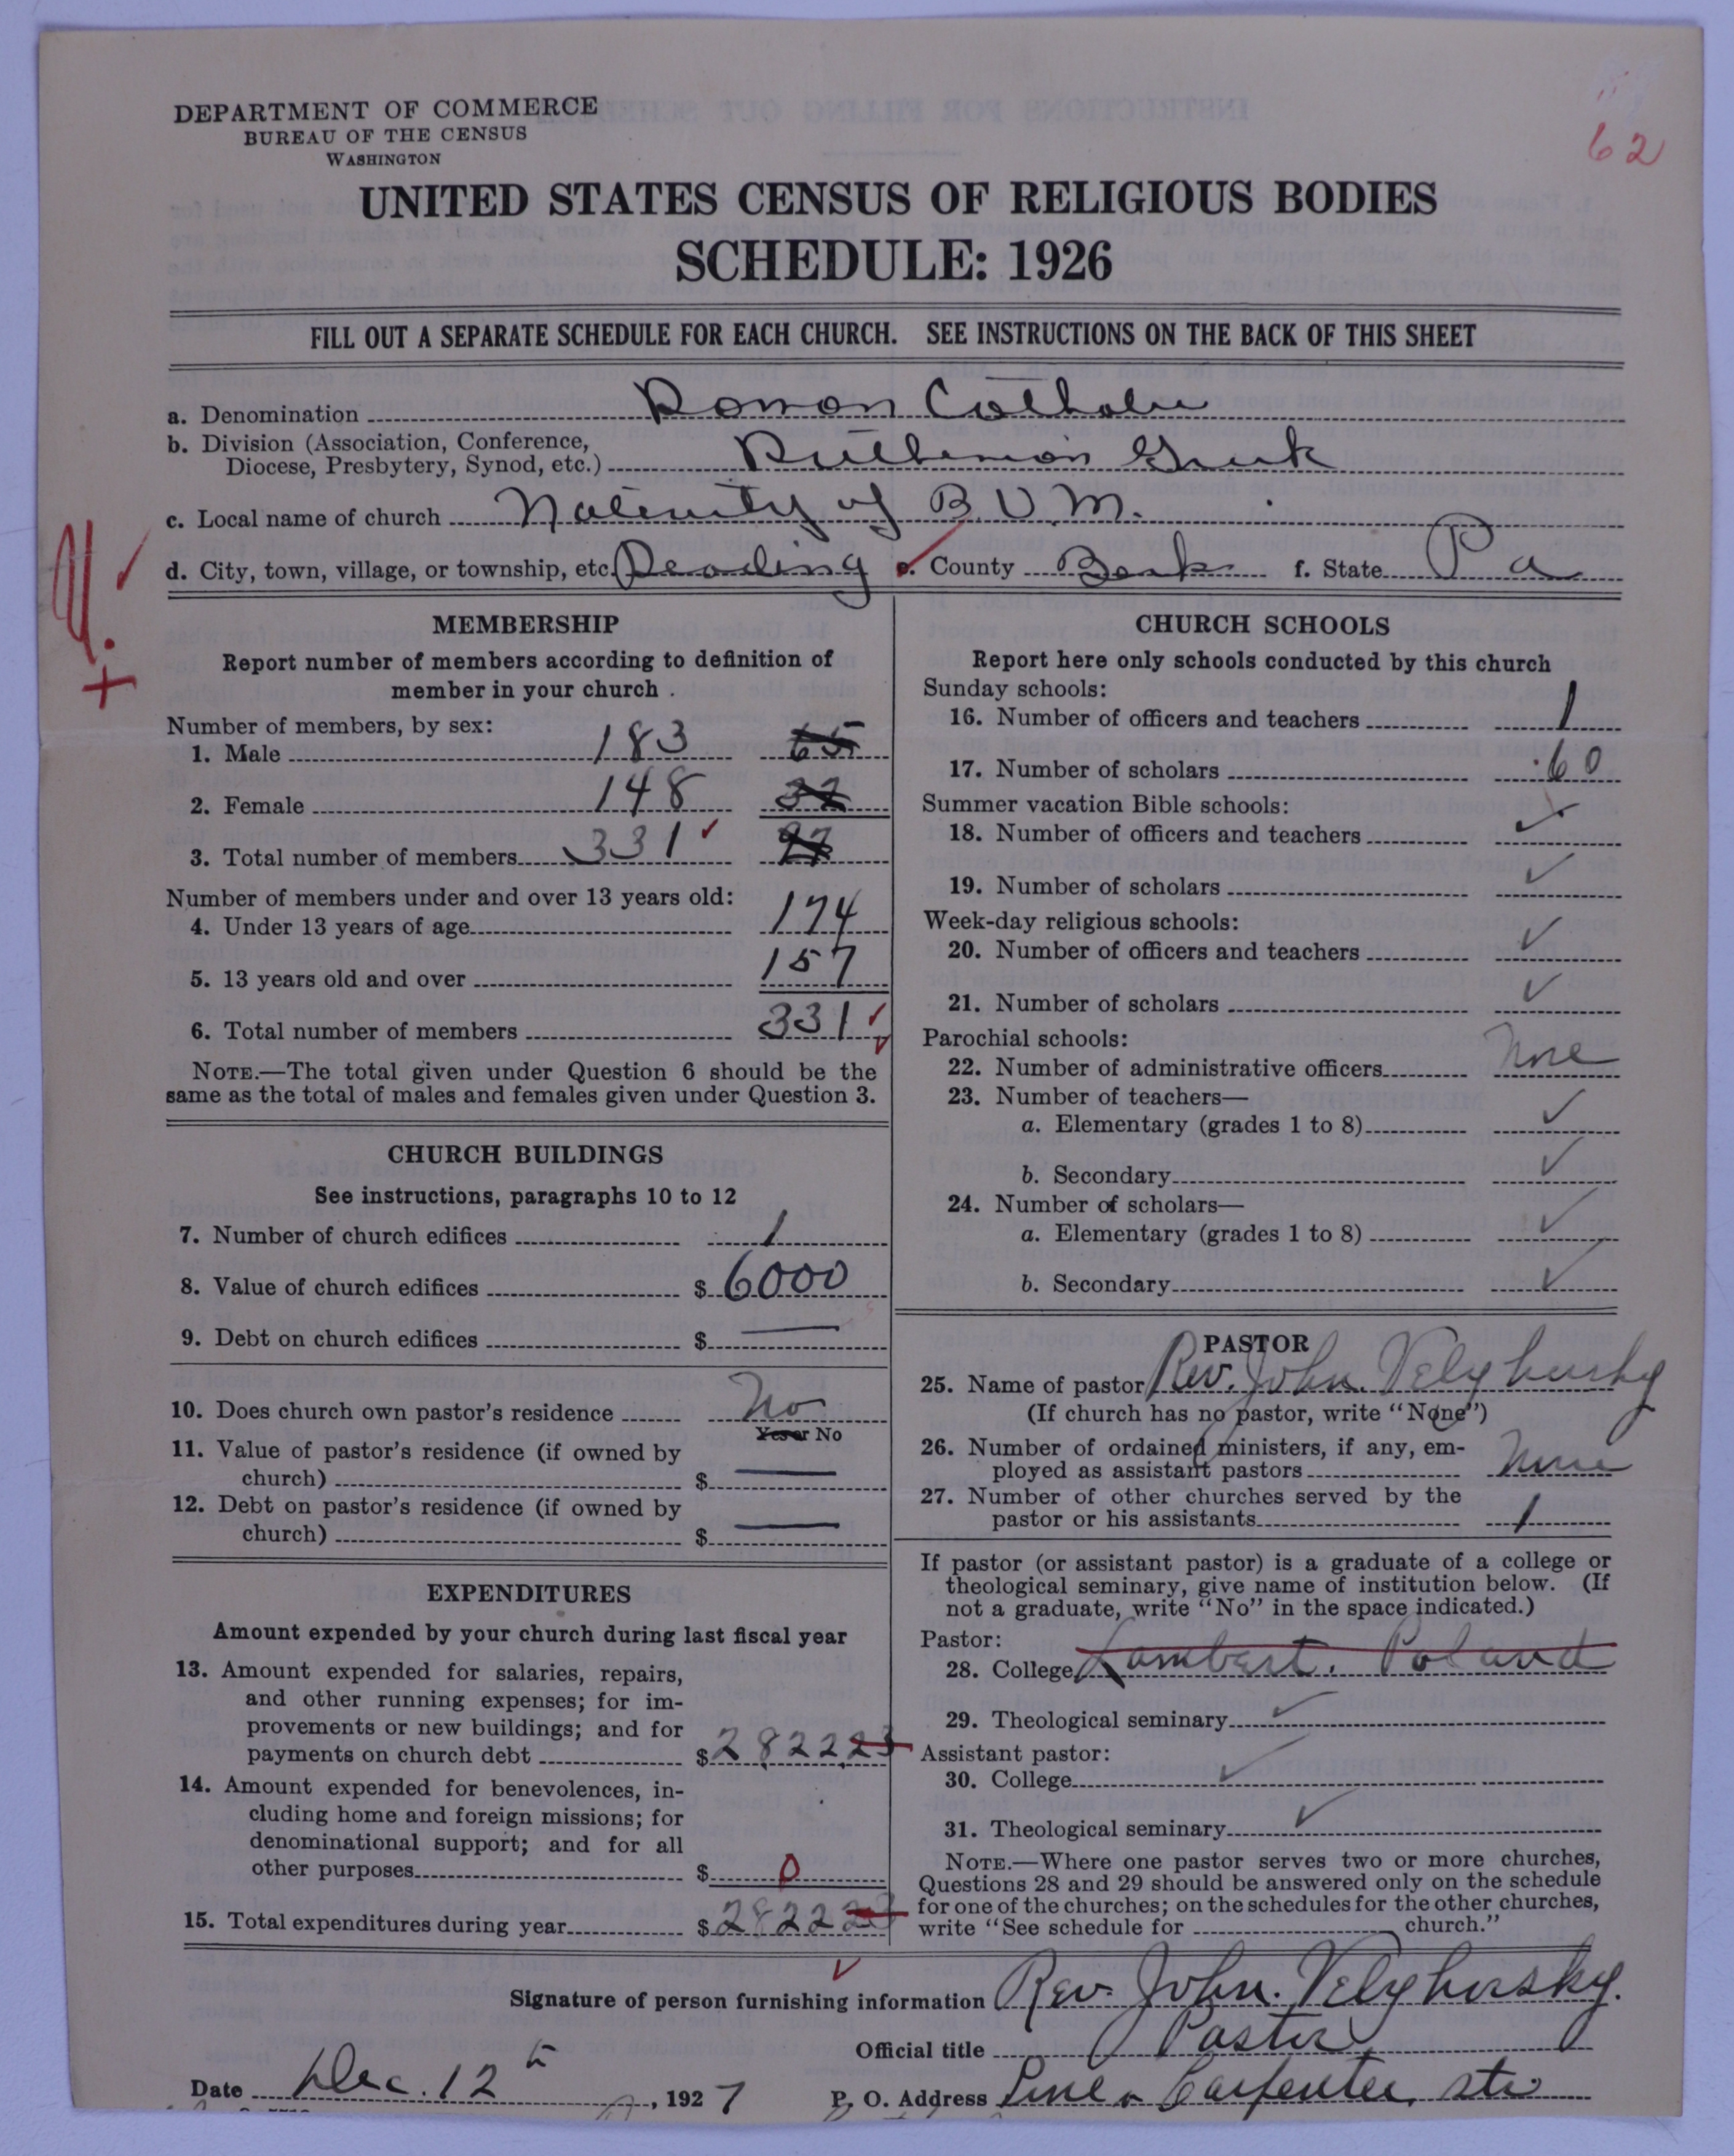 62
DEPARTMENT OF COMMERCE
BUREAU OF THE CENSUS
WASHINGTON
UNITED STATES CENSUS OF RELIGIOUS BODIES
SCHEDULE: 1926
FILL OUT A SEPARATE SCHEDULE FOR EACH CHURCH. SEE INSTRUCTIONS ON THE BACK OF THIS SHEET
a. Denomination Roman Catholic
b. Division (Association, Conference,
Diocese, Presbytery, Synod, etc.) Ruthenian Greek
c. Local name of church Nativity of B.V.M.
d. City, town, village, or township, etc. Reading e. County Berks f. State Pa
MEMBERSHIP
Report number of members according to definition of
member in your church
Number of members, by sex:
1. Male 183 65
2. Female 148 32
3. Total number of members 331 97
Number of members under and over 13 years old:
4. Under 13 years of age 174
5. 13 years old and over 157
6. Total number of members 331
NOTE.—The total given under Question 6 should be the
same as the total of males and females given under Question 3.
CHURCH BUILDINGS
See instructions, paragraphs 10 to 12
7. Number of church edifices 1
8. Value of church edifices $ 6000
9. Debt on church edifices $ —
10. Does church own pastor's residence No
Yes or No
11. Value of pastor's residence (if owned by
church) $ —
12. Debt on pastor's residence (if owned by
church) $ —
EXPENDITURES
Amount expended by your church during last fiscal year
13. Amount expended for salaries, repairs,
and other running expenses; for im-
provements or new buildings; and for
payments on church debt $ 2,822.23
14. Amount expended for benevolences, in-
cluding home and foreign missions; for
denominational support; and for all
other purposes $ 0
15. Total expenditures during year $ 2822 23
CHURCH SCHOOLS
Report here only schools conducted by this church
Sunday schools:
16. Number of officers and teachers 1
17. Number of scholars 60
Summer vacation Bible schools:
18. Number of officers and teachers ✓
19. Number of scholars ✓
Week-day religious schools:
20. Number of officers and teachers ✓
21. Number of scholars ✓
Parochial schools:
22. Number of administrative officers None
23. Number of teachers—
a. Elementary (grades 1 to 8) ✓
b. Secondary ✓
24. Number of scholars—
a. Elementary (grades 1 to 8) ✓
b. Secondary ✓
PASTOR
25. Name of pastor Rev. John Velyhorsky
(If church has no pastor, write "None")
26. Number of ordained ministers, if any, em-
ployed as assistant pastors None
27. Number of other churches served by the
pastor or his assistants 1
If pastor (or assistant pastor) is a graduate of a college or
theological seminary, give name of institution below. (If
not a graduate, write "No" in the space indicated.)
Pastor:
28. College Lambert. Poland
29. Theological seminary ✓
Assistant pastor:
30. College ✓
31. Theological seminary ✓
NOTE.—Where one pastor serves two or more churches,
Questions 28 and 29 should be answered only on the schedule
for one of the churches; on the schedules for the other churches,
write "See schedule for church."
Signature of person furnishing information Rev. John. Velyhorsky.
Official title Pastor
Date Dec. 12, 1927 P. O. Address Pine & Carpenter sts.